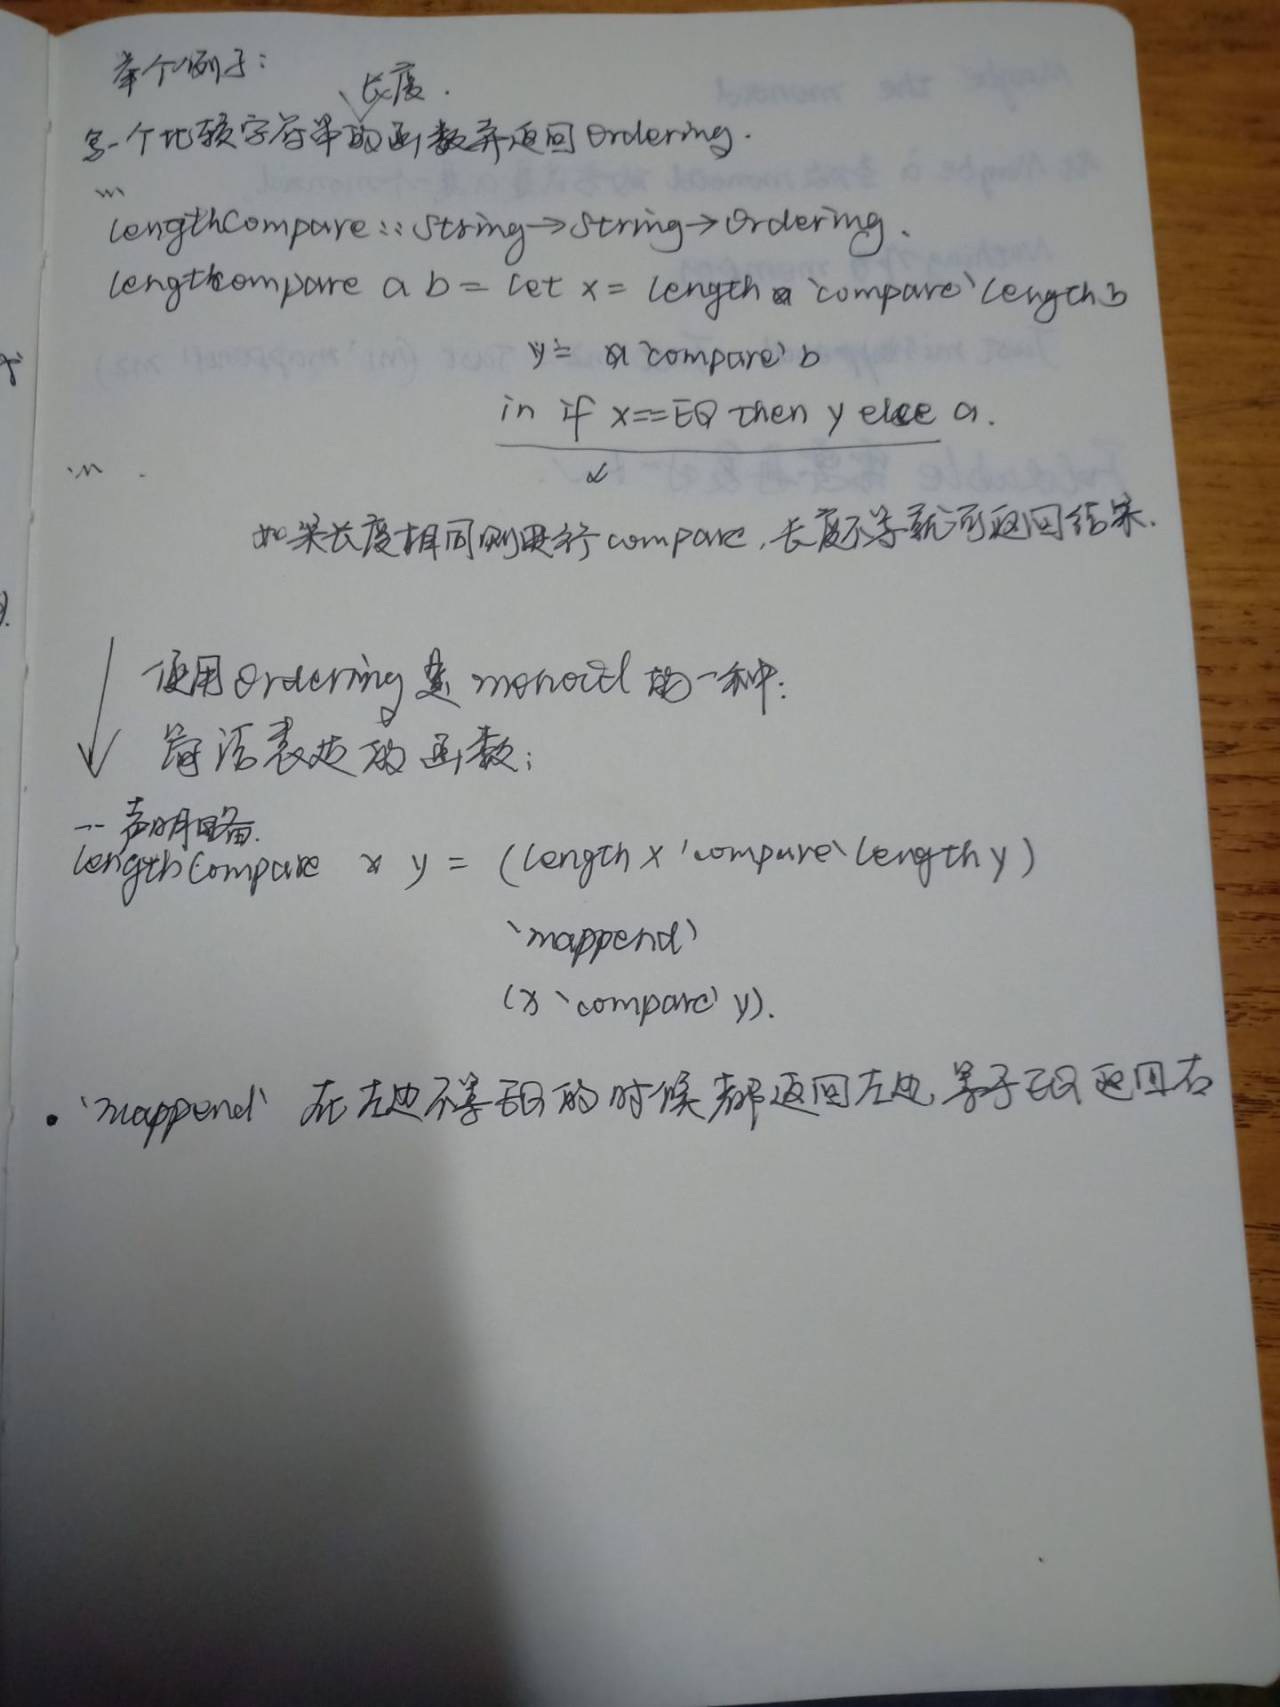 举个例子:
长度.
写一个比较字符串的函数并返回Ordering.
```
lengthCompare :: String→String→Ordering.
lengthCompare a b = let x = length a `compare` length b
y = a `compare` b
in if x==EQ then y else a.
```
如果长度相同则进行compare, 长度不等就可返回结果.
使用Ordering是monoid的一种:
简洁表达的函数;
-- 声明略.
lengthCompare x y = (length x `compare` length y)
`mappend`
(x `compare` y).
• `mappend` 在左边不等EQ的时候都返回左边, 等于EQ返回右